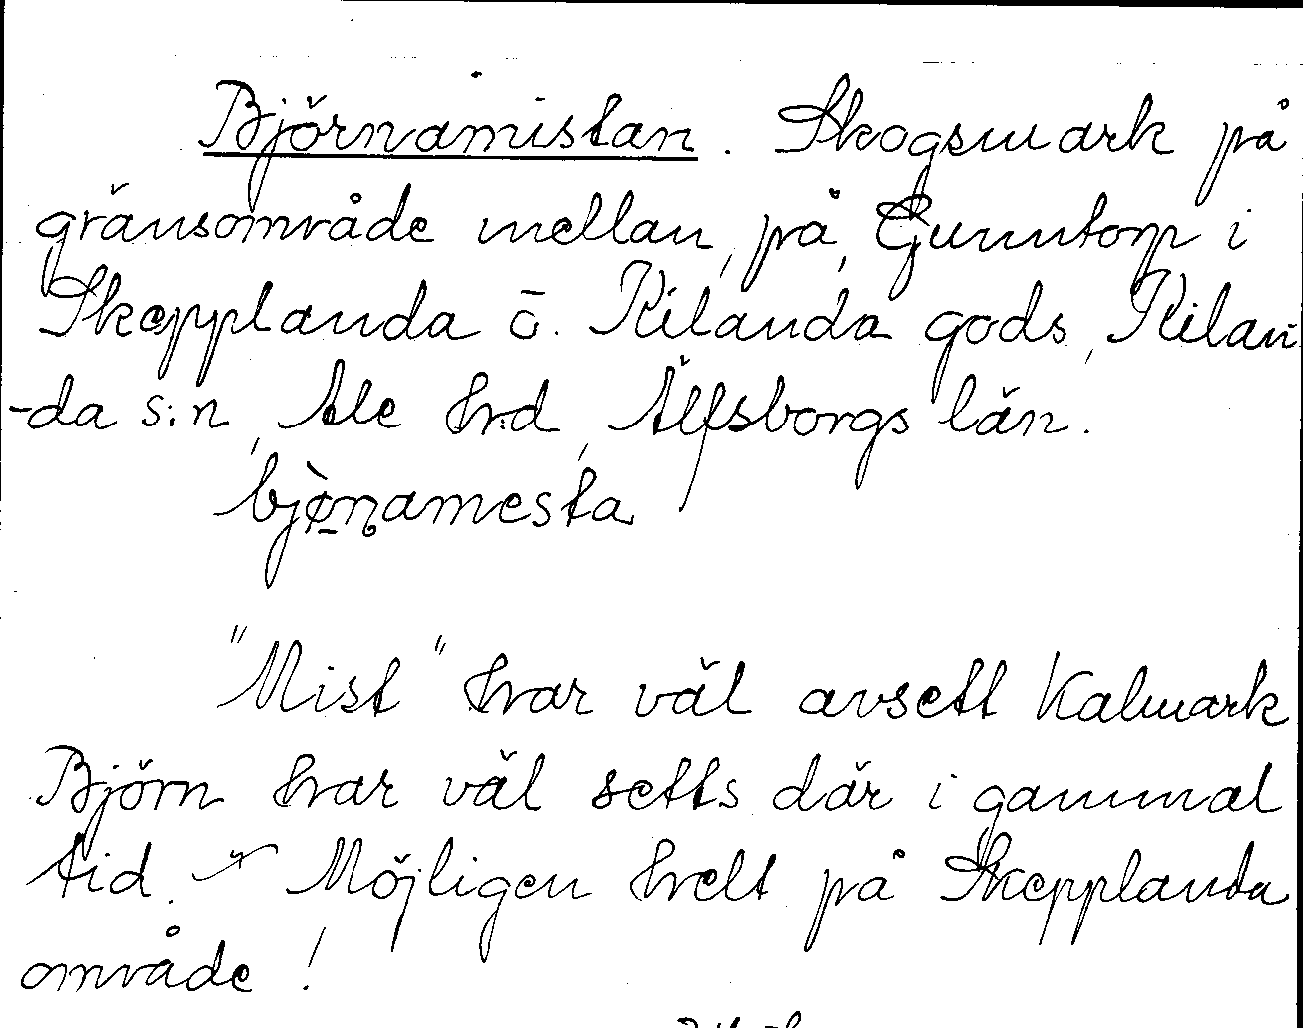 Björnamistan. Skogsmark på
gränsområde mellan, på, Gunntorp i
Skepplanda o. Kilanda gods, Kilan
-da s:n, Ale hrd, Älfsborgs län.
bjɵ̀n̥amesta
"Mist" har väl avsett Kalmark
Björn har väl setts där i gammal
tid. Möjligen helt på Skepplanda
område!